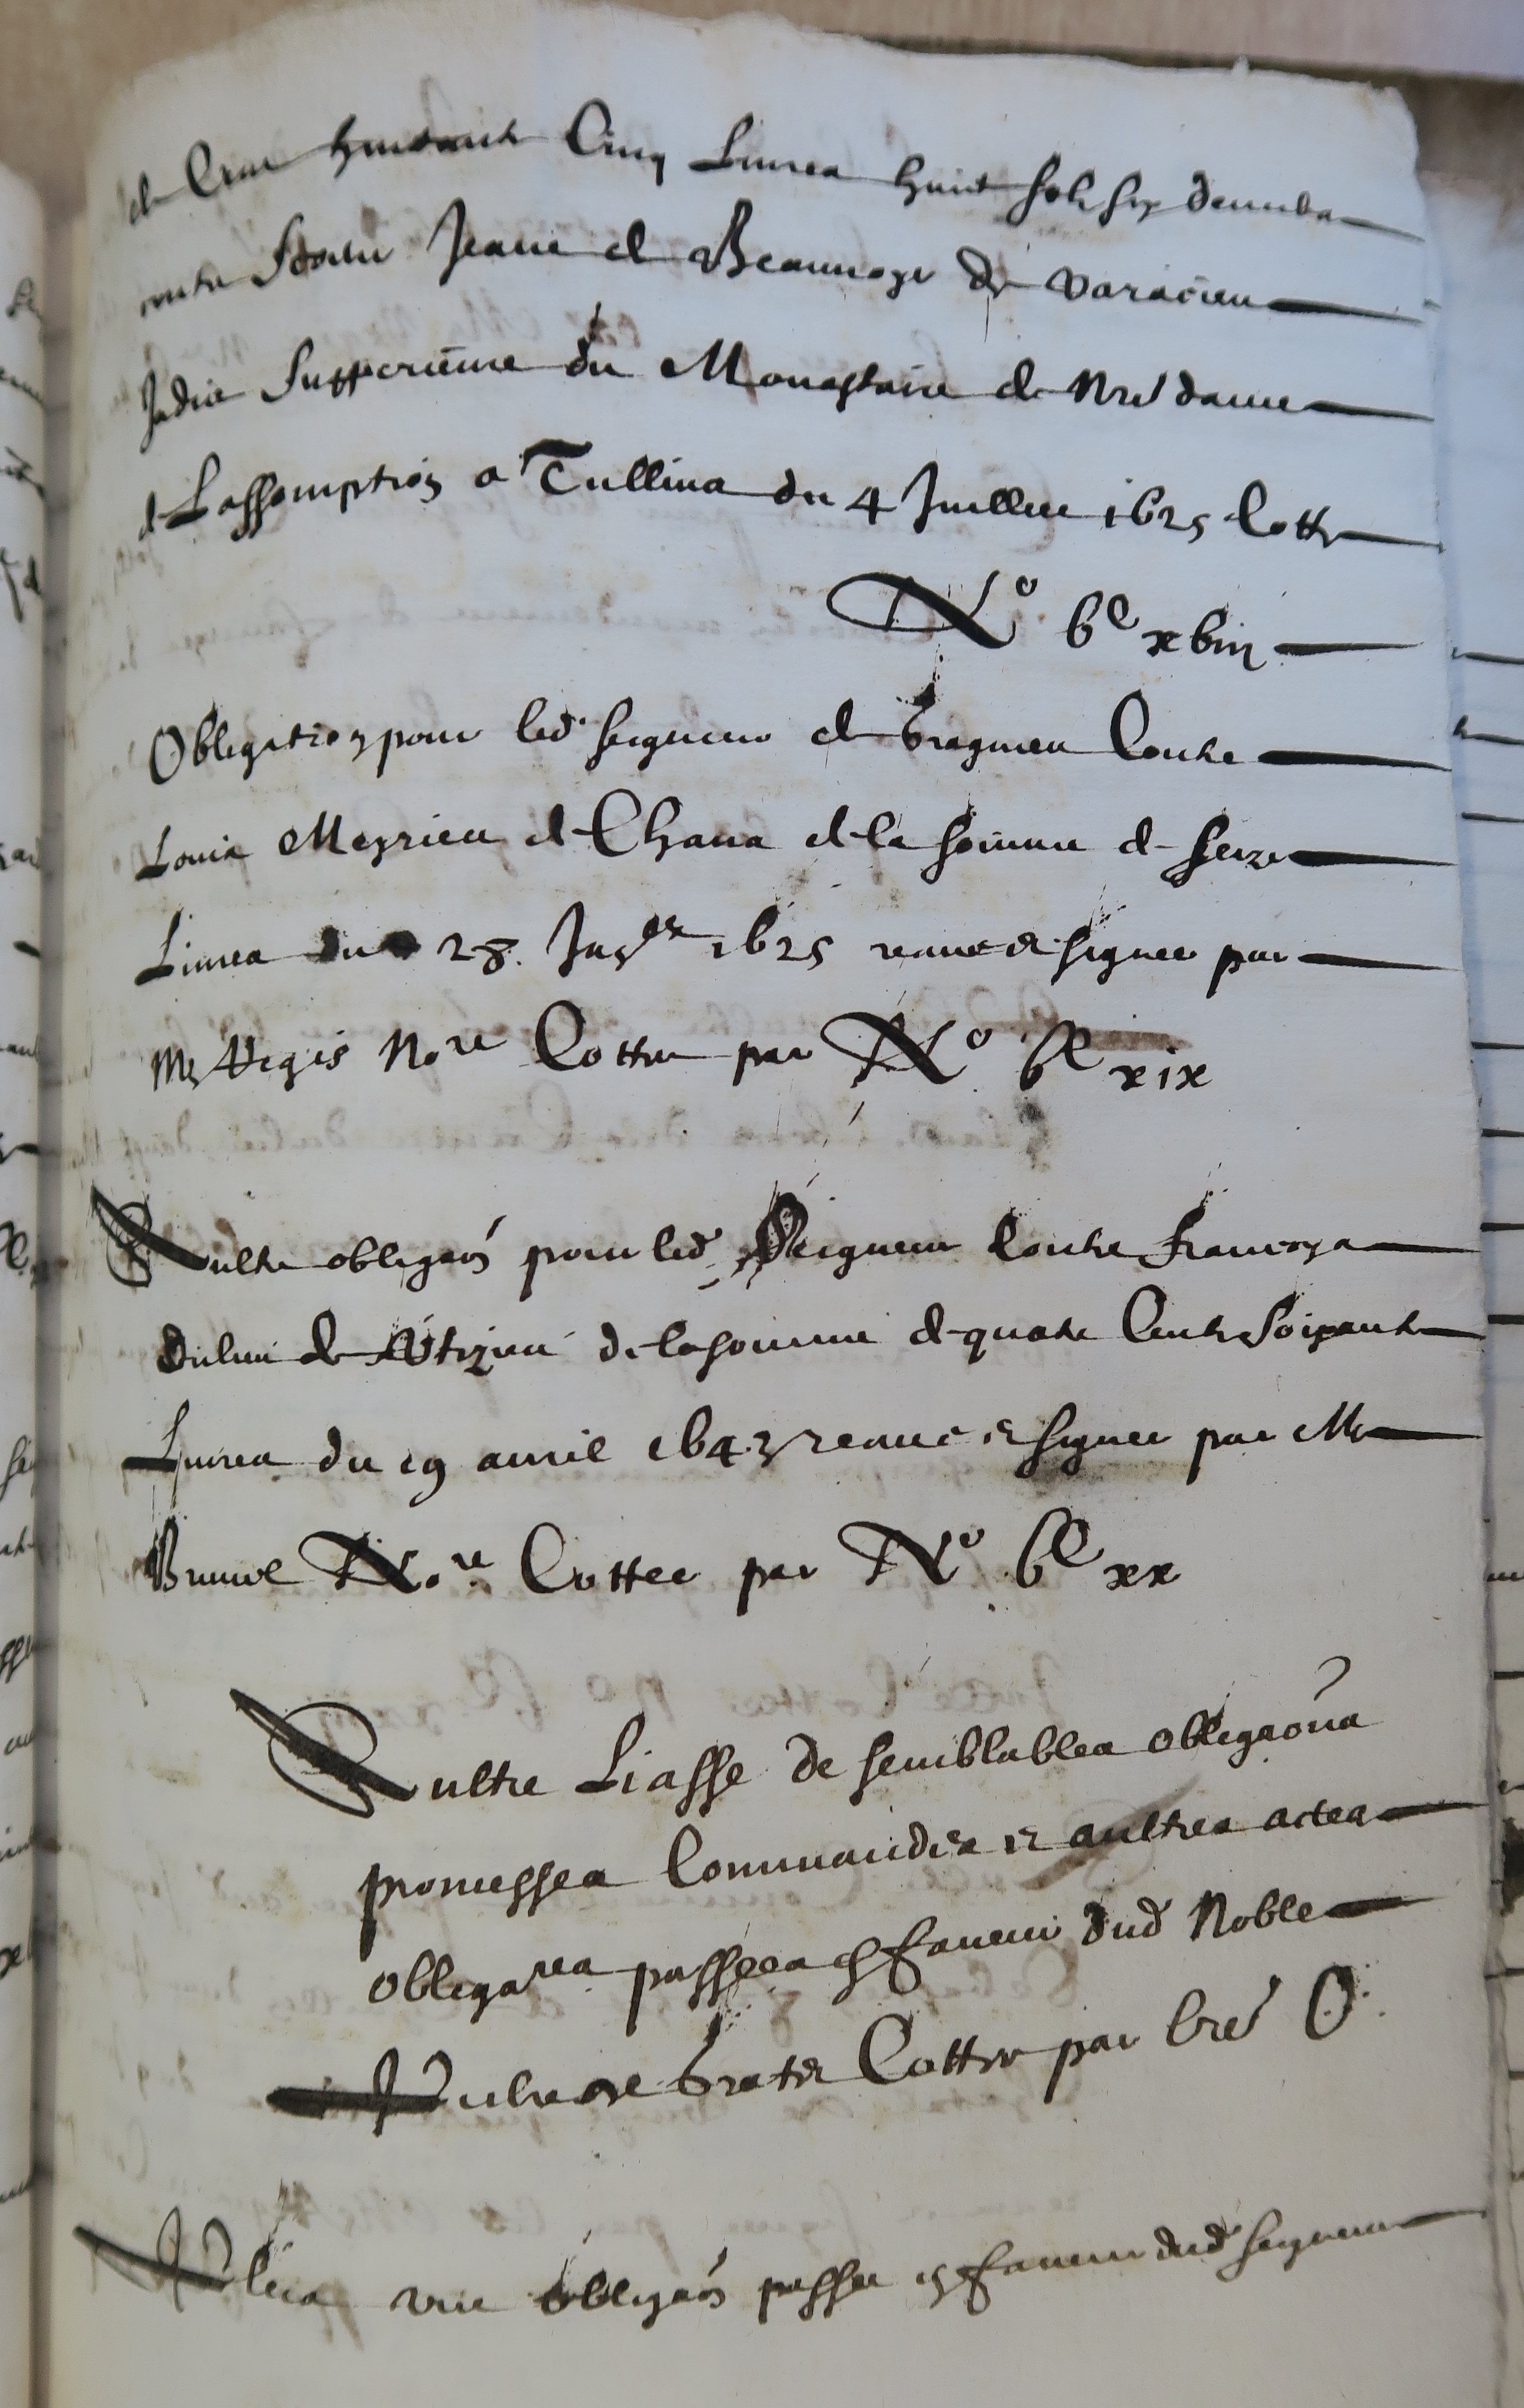 de Cent huictante Cinq Livres huict solz six deniers
contre Soeur Jeane de Beaumoyr de Varacieu
Jadis Supperieure du Monastaire de Nre dame
de Lassomption a Tullins du 4 Juillet 1625 Cotté
No bc xbiii
Obligation pour led seigneur de bragnieu Contre
Louis Meyrieu de Chana de la somme de seize
Livres du 28. Janer 1625 receue et signee par
Me Regis Nore Cottee par No bc xix
Aultre obligaon pour led Seigneur Contre Francoys
de de la somme de quatre Centz soixante
Livres du 19 avril 1643 receue et signee par Me
Brunel Nore Cottee par No bc xx
Aultre Liasse de semblables obligaons
promesses Commandes et aultres actes
obligares passees en faveur dud Noble
Cottee par lre O.
Plus une obligaon passee en faveur dud seigneur